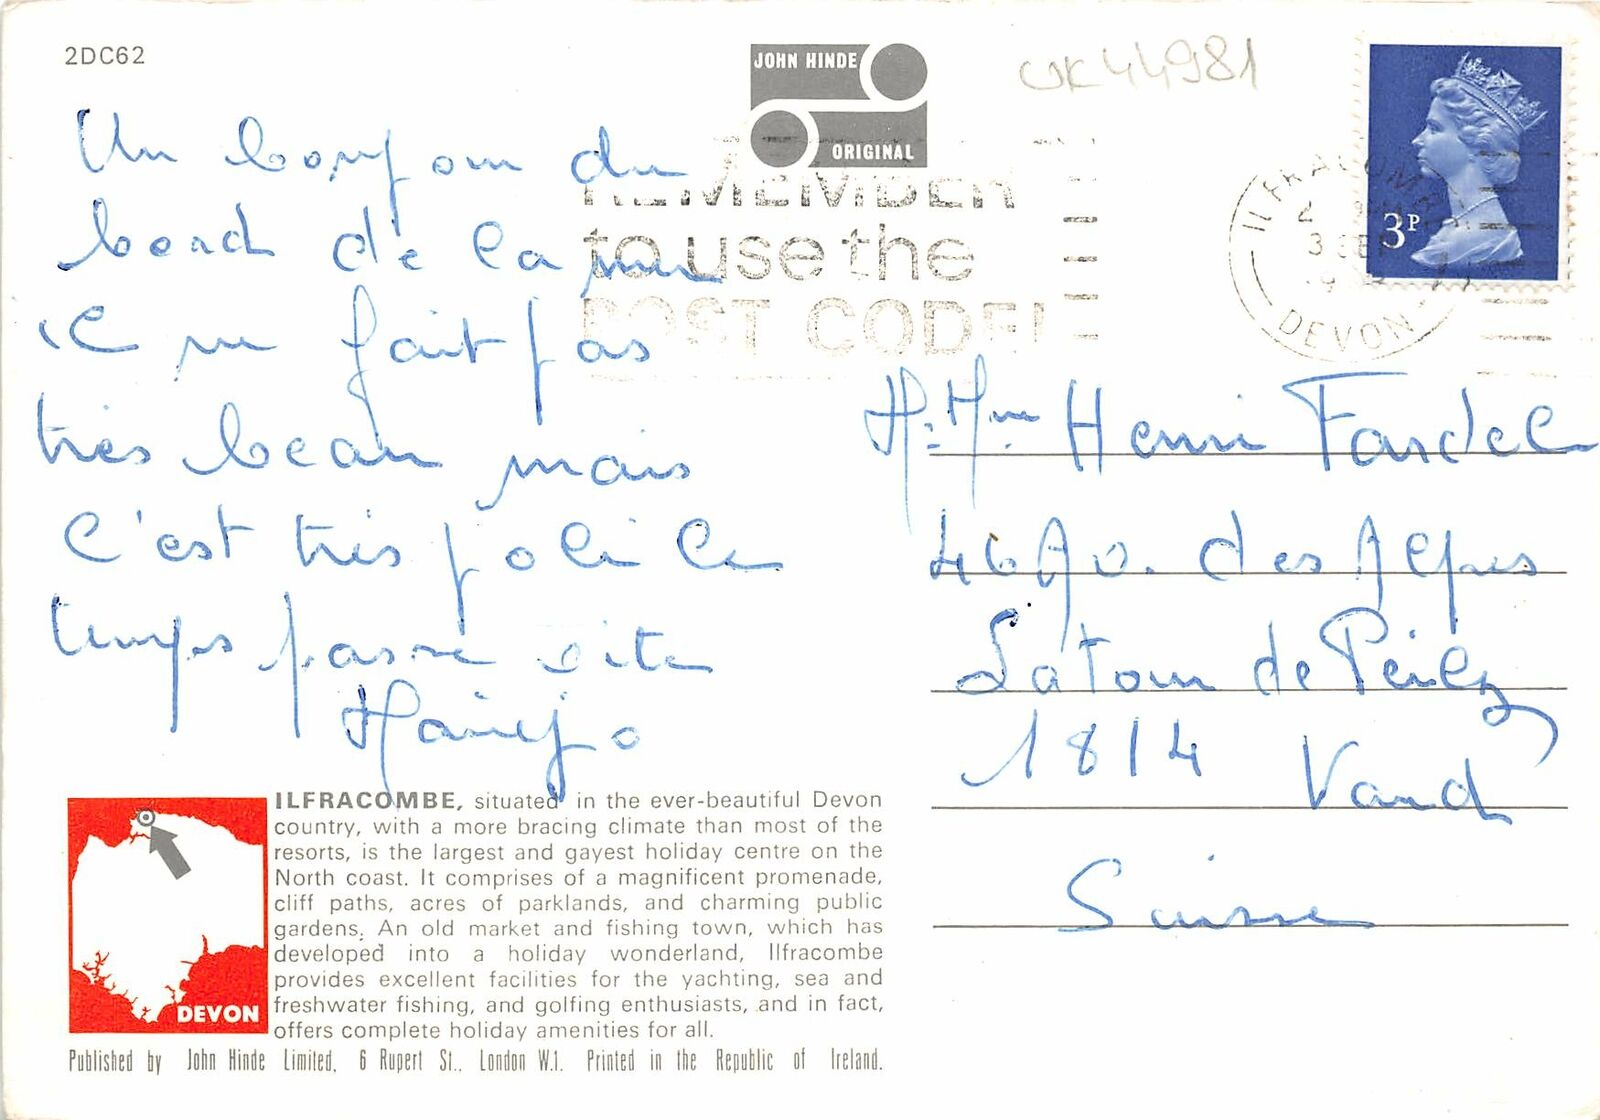 2DC62
JOHN HINDE
ORIGINAL
UK44981
REMEMBER
to use the
POST CODE!
ILFRACOMBE
DEVON
3P
Un bonjour du
bord de la mer
il ne fait pas
très beau mais
c'est très joli le
temps passe vite
M. Mme Henri Fardel
46 Av. des Alpes
La Tour de Peilz
1814 Vaud
Suisse
ILFRACOMBE, situated in the ever-beautiful Devon
country, with a more bracing climate than most of the
resorts, is the largest and gayest holiday centre on the
North coast. It comprises of a magnificent promenade,
cliff paths, acres of parklands, and charming public
gardens. An old market and fishing town, which has
developed into a holiday wonderland, Ilfracombe
provides excellent facilities for the yachting, sea and
freshwater fishing, and golfing enthusiasts, and in fact,
offers complete holiday amenities for all.
DEVON
Published by John Hinde Limited, 6 Rupert St., London W.1. Printed in the Republic of Ireland.